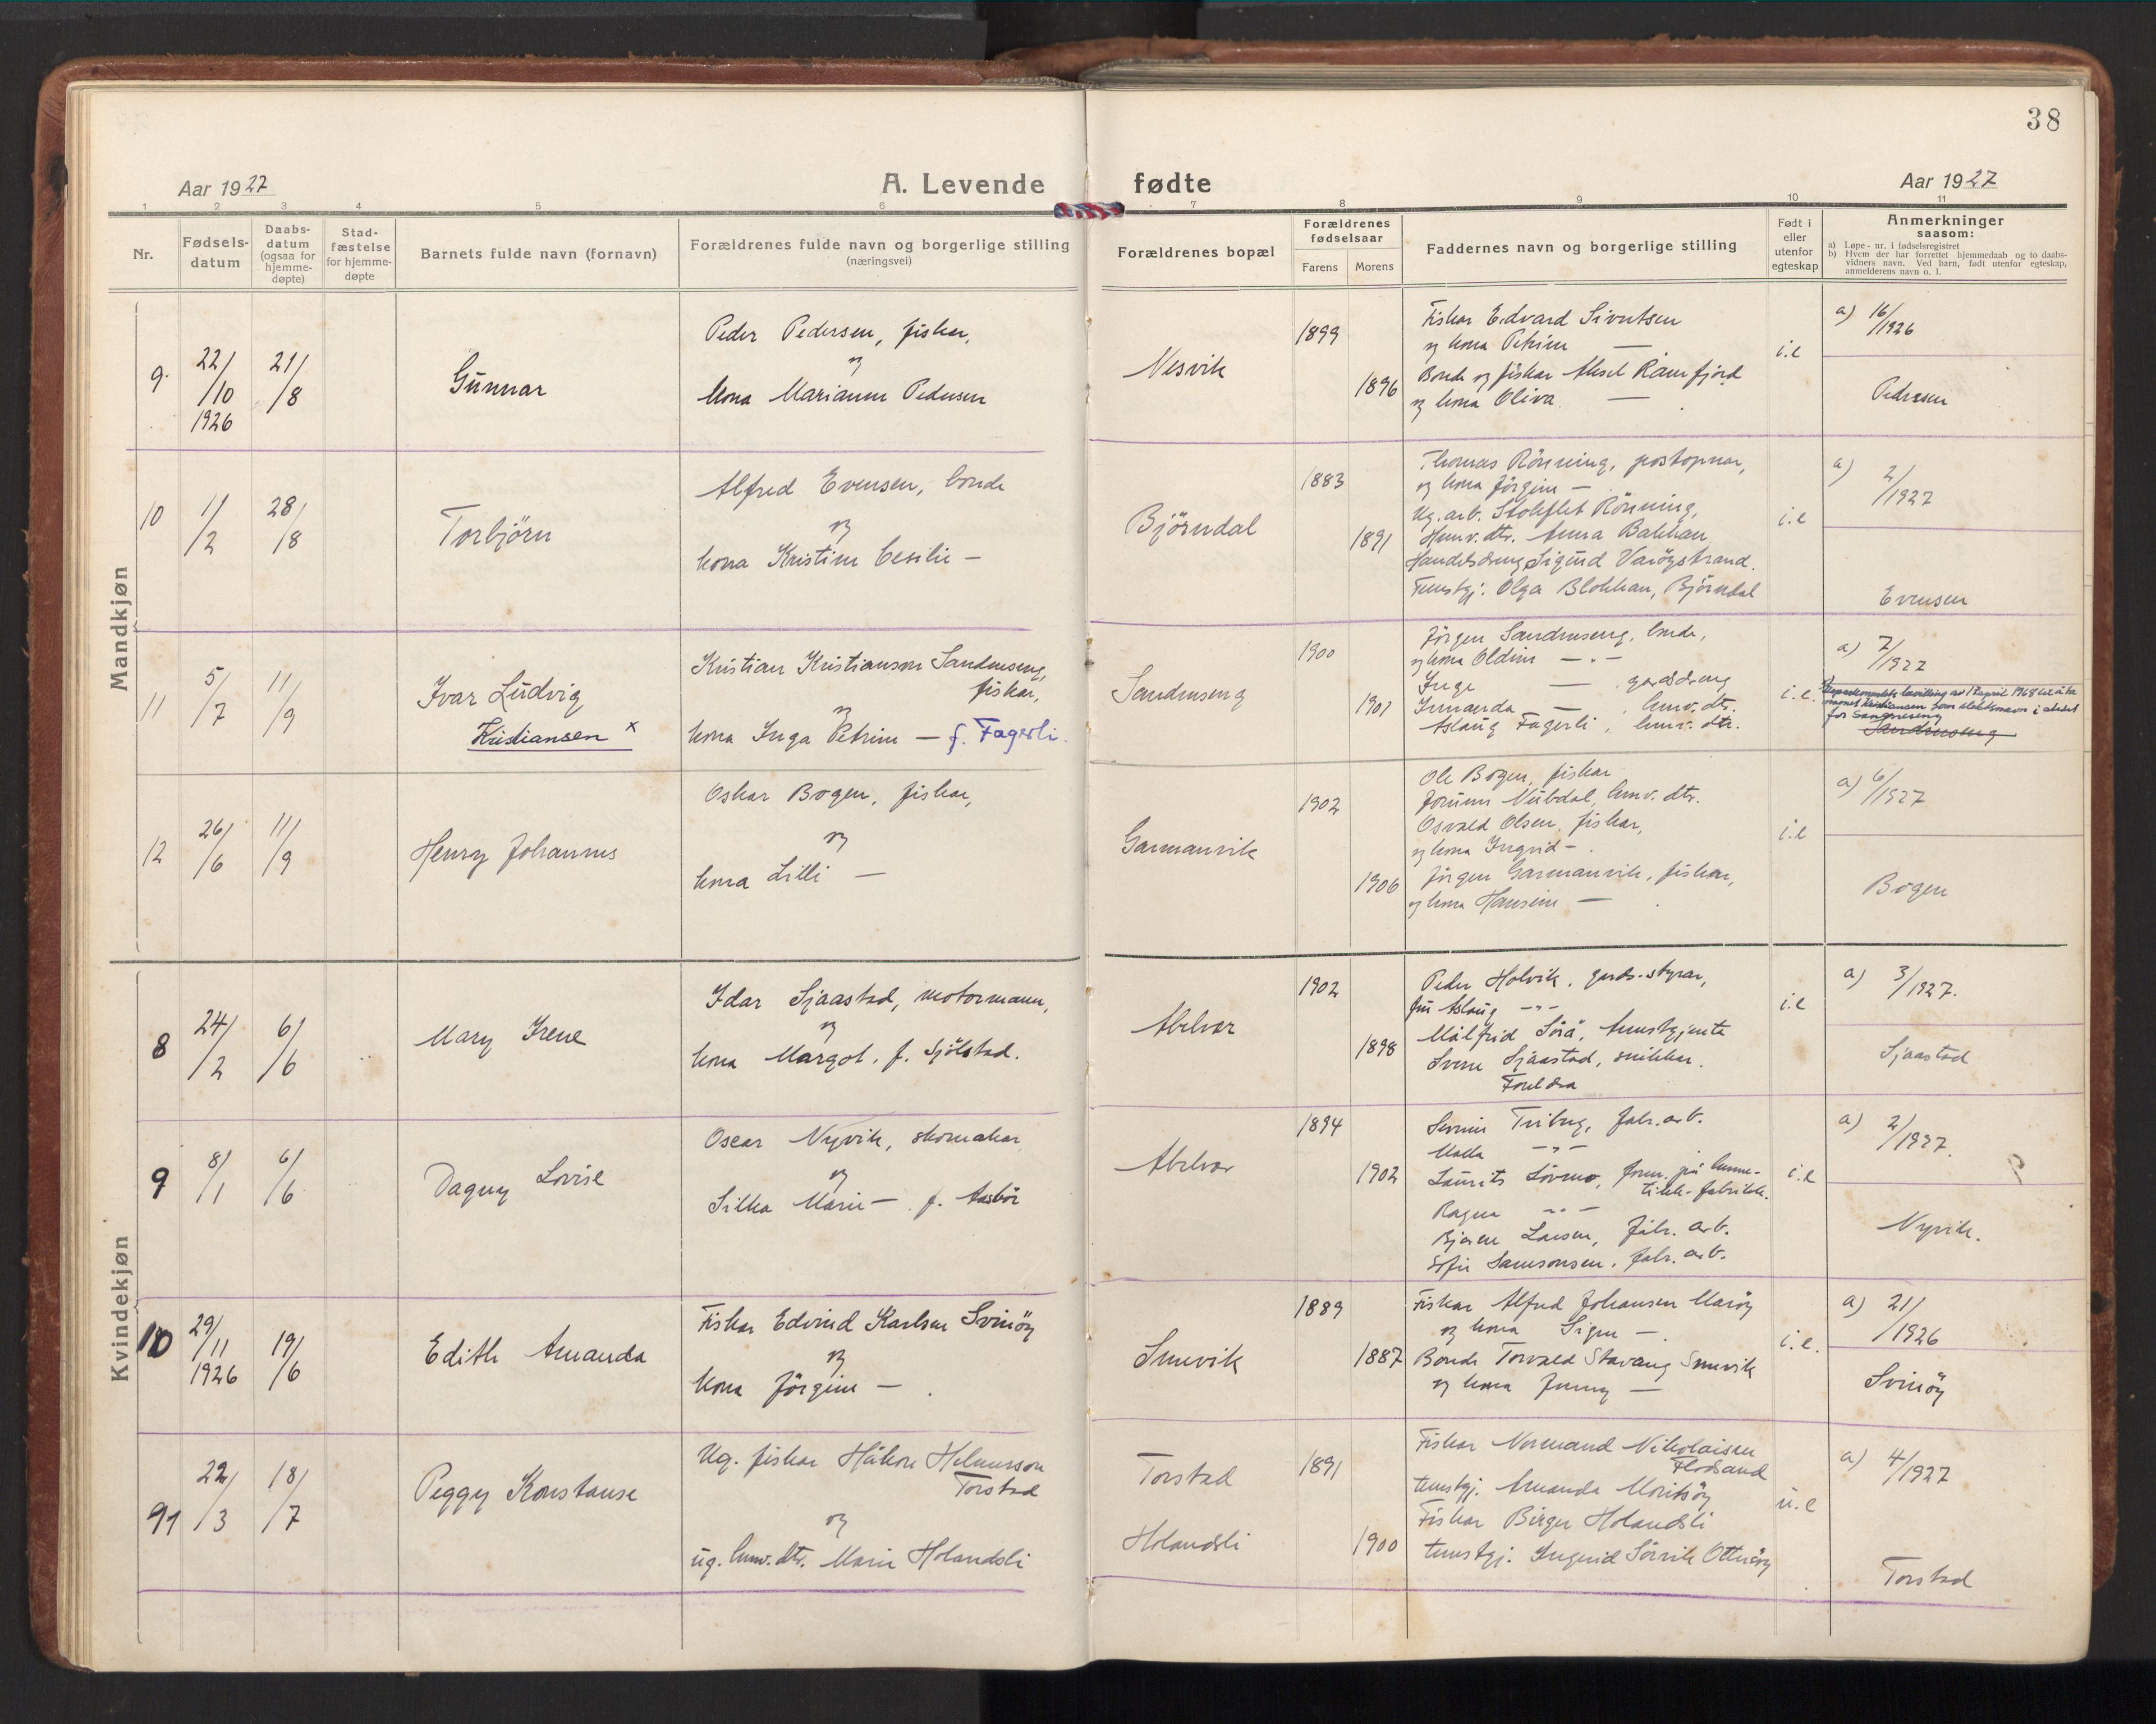 38
Aar 1927
A. Levende fødte
Aar 1927
1 2 3 4 5 6 7 8 9 10 11
Nr.
Fødsels-
datum
Daabs-
datum
(ogsaa for
hjemme-
døpte)
Stad-
fæstelse
for hjemme-
døpte
Barnets fulde navn (fornavn)
Forældrenes fulde navn og borgerlige stilling
(næringsvei)
Forældrenes bopæl
Forældrenes
fødselsaar
Farens
Morens
Faddernes navn og borgerlige stilling
Født i
eller
utenfor
egteskap
Anmerkninger
saasom:
a) Løpe-nr. i fødselsregistret
b) Hvem der har forrettet hjemmedaab og to daabs-
vidners navn. Ved barn, født utenfor egteskap,
anmelderens navn o. l.
Mandkjøn
9.
22/10
1926
21/8
Gunnar
Peder Pedersen, fiskar,
og
kona Marianne Pedersen
Nesvik
1899
1896
Fiskar Edvard Sivertsen
og kona Petrine —
Bonde og fiskar Aksel Ramfjord
og kona Oliva —
i.e
a) 16/1926
Pedersen
10
1/2
28/8
Torbjörn
Alfred Evensen, bonde
og
kona Kristine Cesilie —
Björndal
1883
1891
Thomas Rönning, postopnar,
og kona Jörgine —
Ug. arb. Rönning,
Husv. dtr. Anna Bakkan
Handelsdreng Sigurd Varöystrand.
Tenestgj. Olga Blokkan, Björndal
i.e
a) 2/1927
Evensen
11
5/7
11/9
Ivar Ludvig
Kristiansen x
Kristian Kristianson Sandnseng,
fiskar,
og
kona Inga Petrine — f. Fagerli.
Sandnseng
1900
1901
Jörgen Sandnseng, bonde,
og kona Oldine — " —
Inge — gardsdreng
Irmanda — , husv. dtr.
Aslaug Fagerli, husv. dtr.
i.e.
a) 7/1927
bevilling av 17 april 1968 til å ta
navnet Kristiansen som slektsnavn i stedet
for Sandnseng
Sandnseng
12
26/6
11/9
Henry Johannes
Oskar Bogen, fiskar,
og
kona Lilli —
Garmanvik
1902
1906
Ole Bogen, fiskar
Jorunn Nubdal, husv. dtr.
Osvald Olsen, fiskar,
og kona Ingrid —.
Jörgen Garmanvik, fiskar,
og kona Hansine —
i.e
a) 6/1927
Bogen
Kvindekjøn
8
24/2
6/6
Mary Irene
Idar Sjaastad, motormann,
og
kona Margot, f. Sjölstad.
Abelvær
1902
1898
Peder Holvik, gards-styrar,
fru Aslaug — " —
Målfrid Sörå, tenestgjente
Sverre Sjaastad, snikkar.
Foreldra
i.e
a) 3/1927.
Sjaastad
9
8/1
6/6
Dagny Lovise
Oscar Nyvik, skomakar
og
Silka Marie — f. Aasbör
Abelvær
1894
1902
Severin Triberg, fabr. arb.
— " —
Laurits Lövmo, form. på herme-
tikk-fabrikk.
Ragna — " —
Bjarne Larsen, fabr. arb.
Sofie Samsonsen, fabr. arb.
i.e
a) 2/1927.
Nyvik.
10
29/11
1926
19/6
Edith Amanda
Fiskar Edvind Karlsen Svinöy
og
kona Jörgine —.
Smevik
1889
1887
Fiskar Alfred Johansen Maröy
og kona Signe —.
Bonde Torvald Stavang Smevik
og kona Jenny —
i.e.
a) 21/1926
Svinöy
91
22/3
18/7
Peggy Konstanse
Ug. fiskar Håkon Helmersson
Torstad
og
ug. husv. dtr. Marie Holandsli
Torstad
Holandsli
1891
1900
Fiskar Normand Nikolaisen
Flodsand
tenestgj. Amanda Moritsöy
Fiskar Birger Holandsli
tenestgj. Ingrid Sörvik Otteröy
u.e
a) 4/1927
Torstad